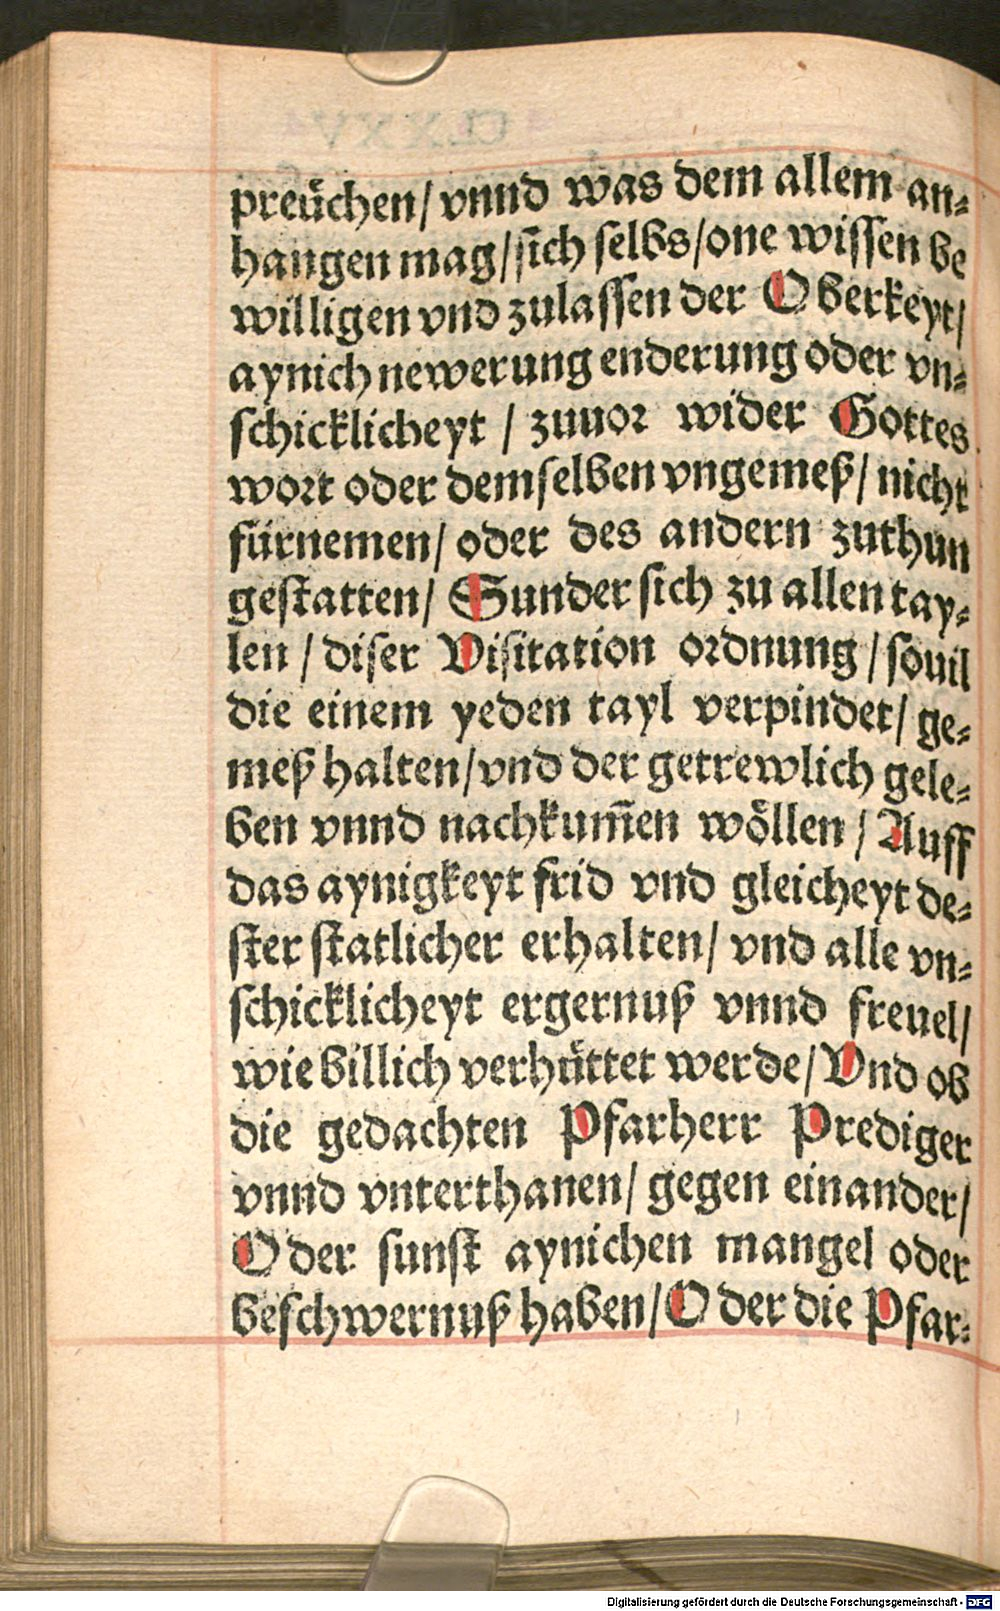 preuͤchen/ vnnd was dem allem an⸗
hangen mag/ sich selbs/ one wissen be
willigen vnd zulassen der Oberkeyt/
aynich newerung enderung oder vn⸗
schicklicheyt / zuuor wider Gottes
wort oder demselben vngemeß/ nicht
fürnemen/ oder des andern zuthun
gestatten/ Sunder sich zu allen tay⸗
len / diser Visitation ordnung / souil
die einem yeden tayl verpindet/ ge⸗
meß halten/ vnd der getrewlich gele⸗
ben vnnd nachkum̅en woͤllen / Auff
das aynigkeyt frid vnd gleicheyt de⸗
ster statlicher erhalten/ vnd alle vn⸗
schicklicheyt ergernuß vnnd freuel/
wie billich verhuͤttet werde/ Vnd ob
die gedachten Pfarherr Prediger
vnnd vnterthanen/ gegen einander/
Oder sunst aynichen mangel oder
beschwernuß haben/ Oder die Pfar⸗
Digitalisierung gefördert durch die Deutsche Forschungsgemeinschaft - DFG